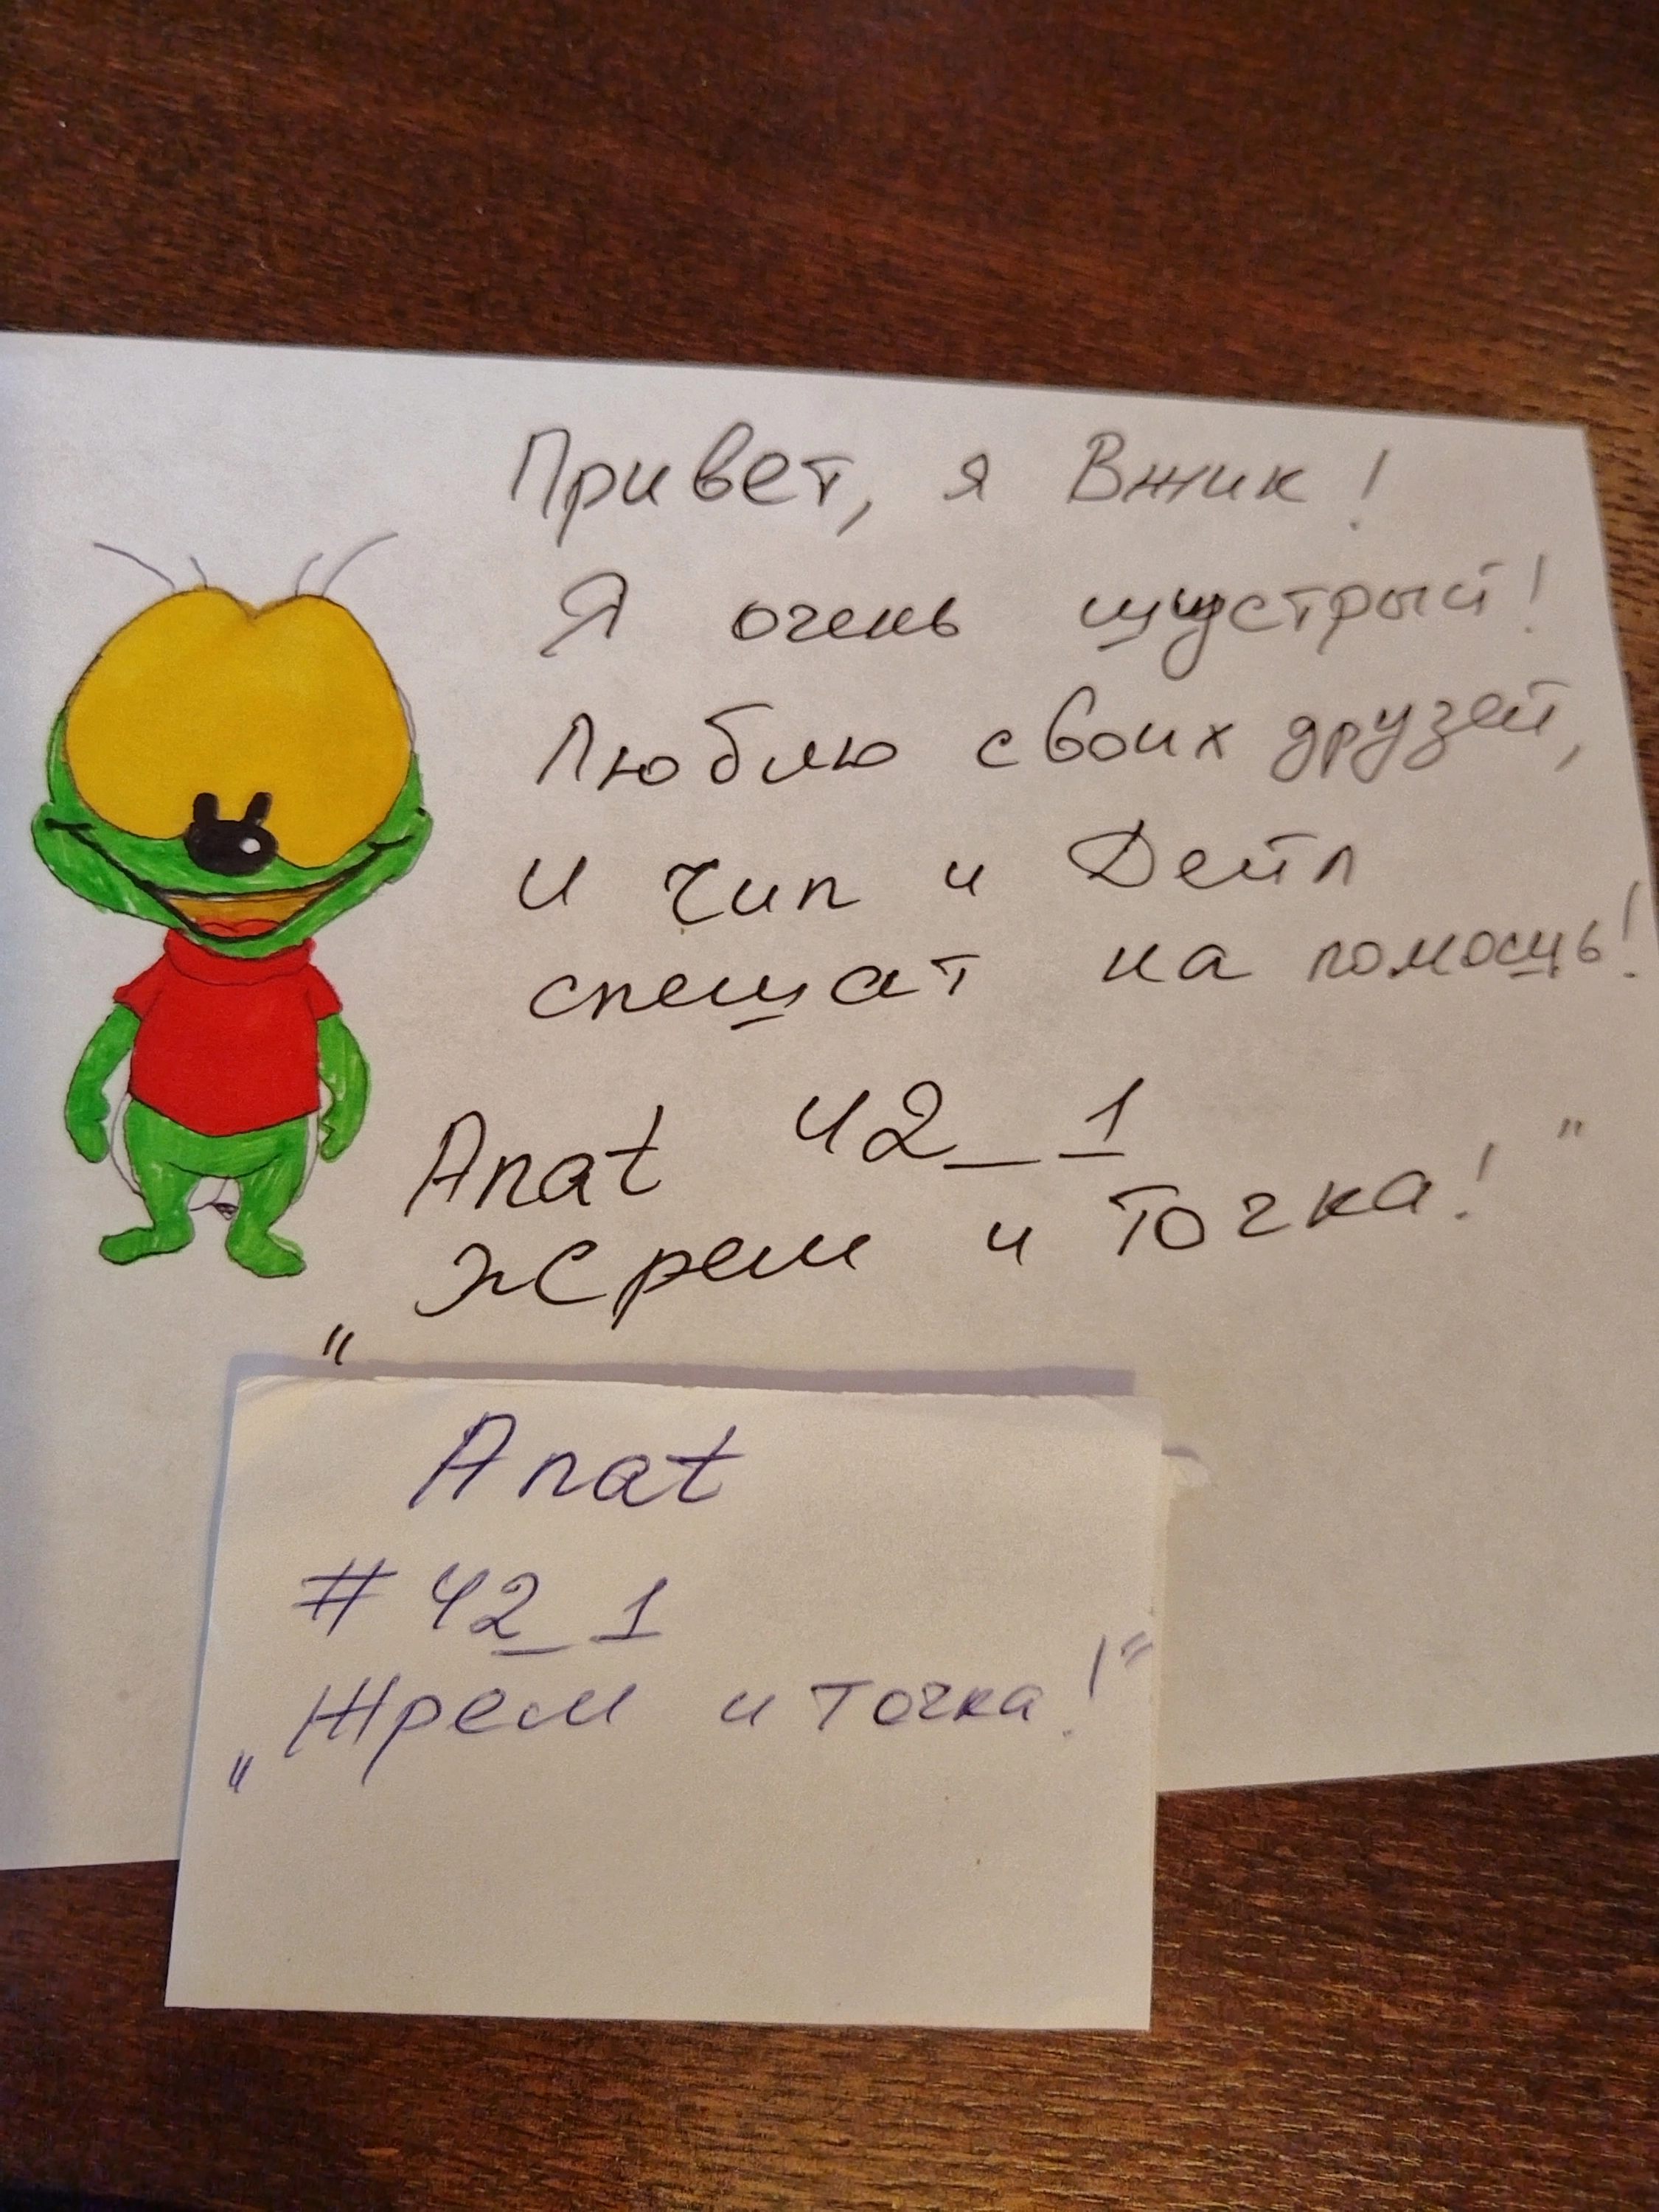 Привет, я Вжик!
Я очень шустрый!
Люблю своих друзей,
и Чип и Дейл
спешат на помощь!
Anat 42_1
„Жрем и точка!"
Anat
#42_1
„Жрем и точка!"